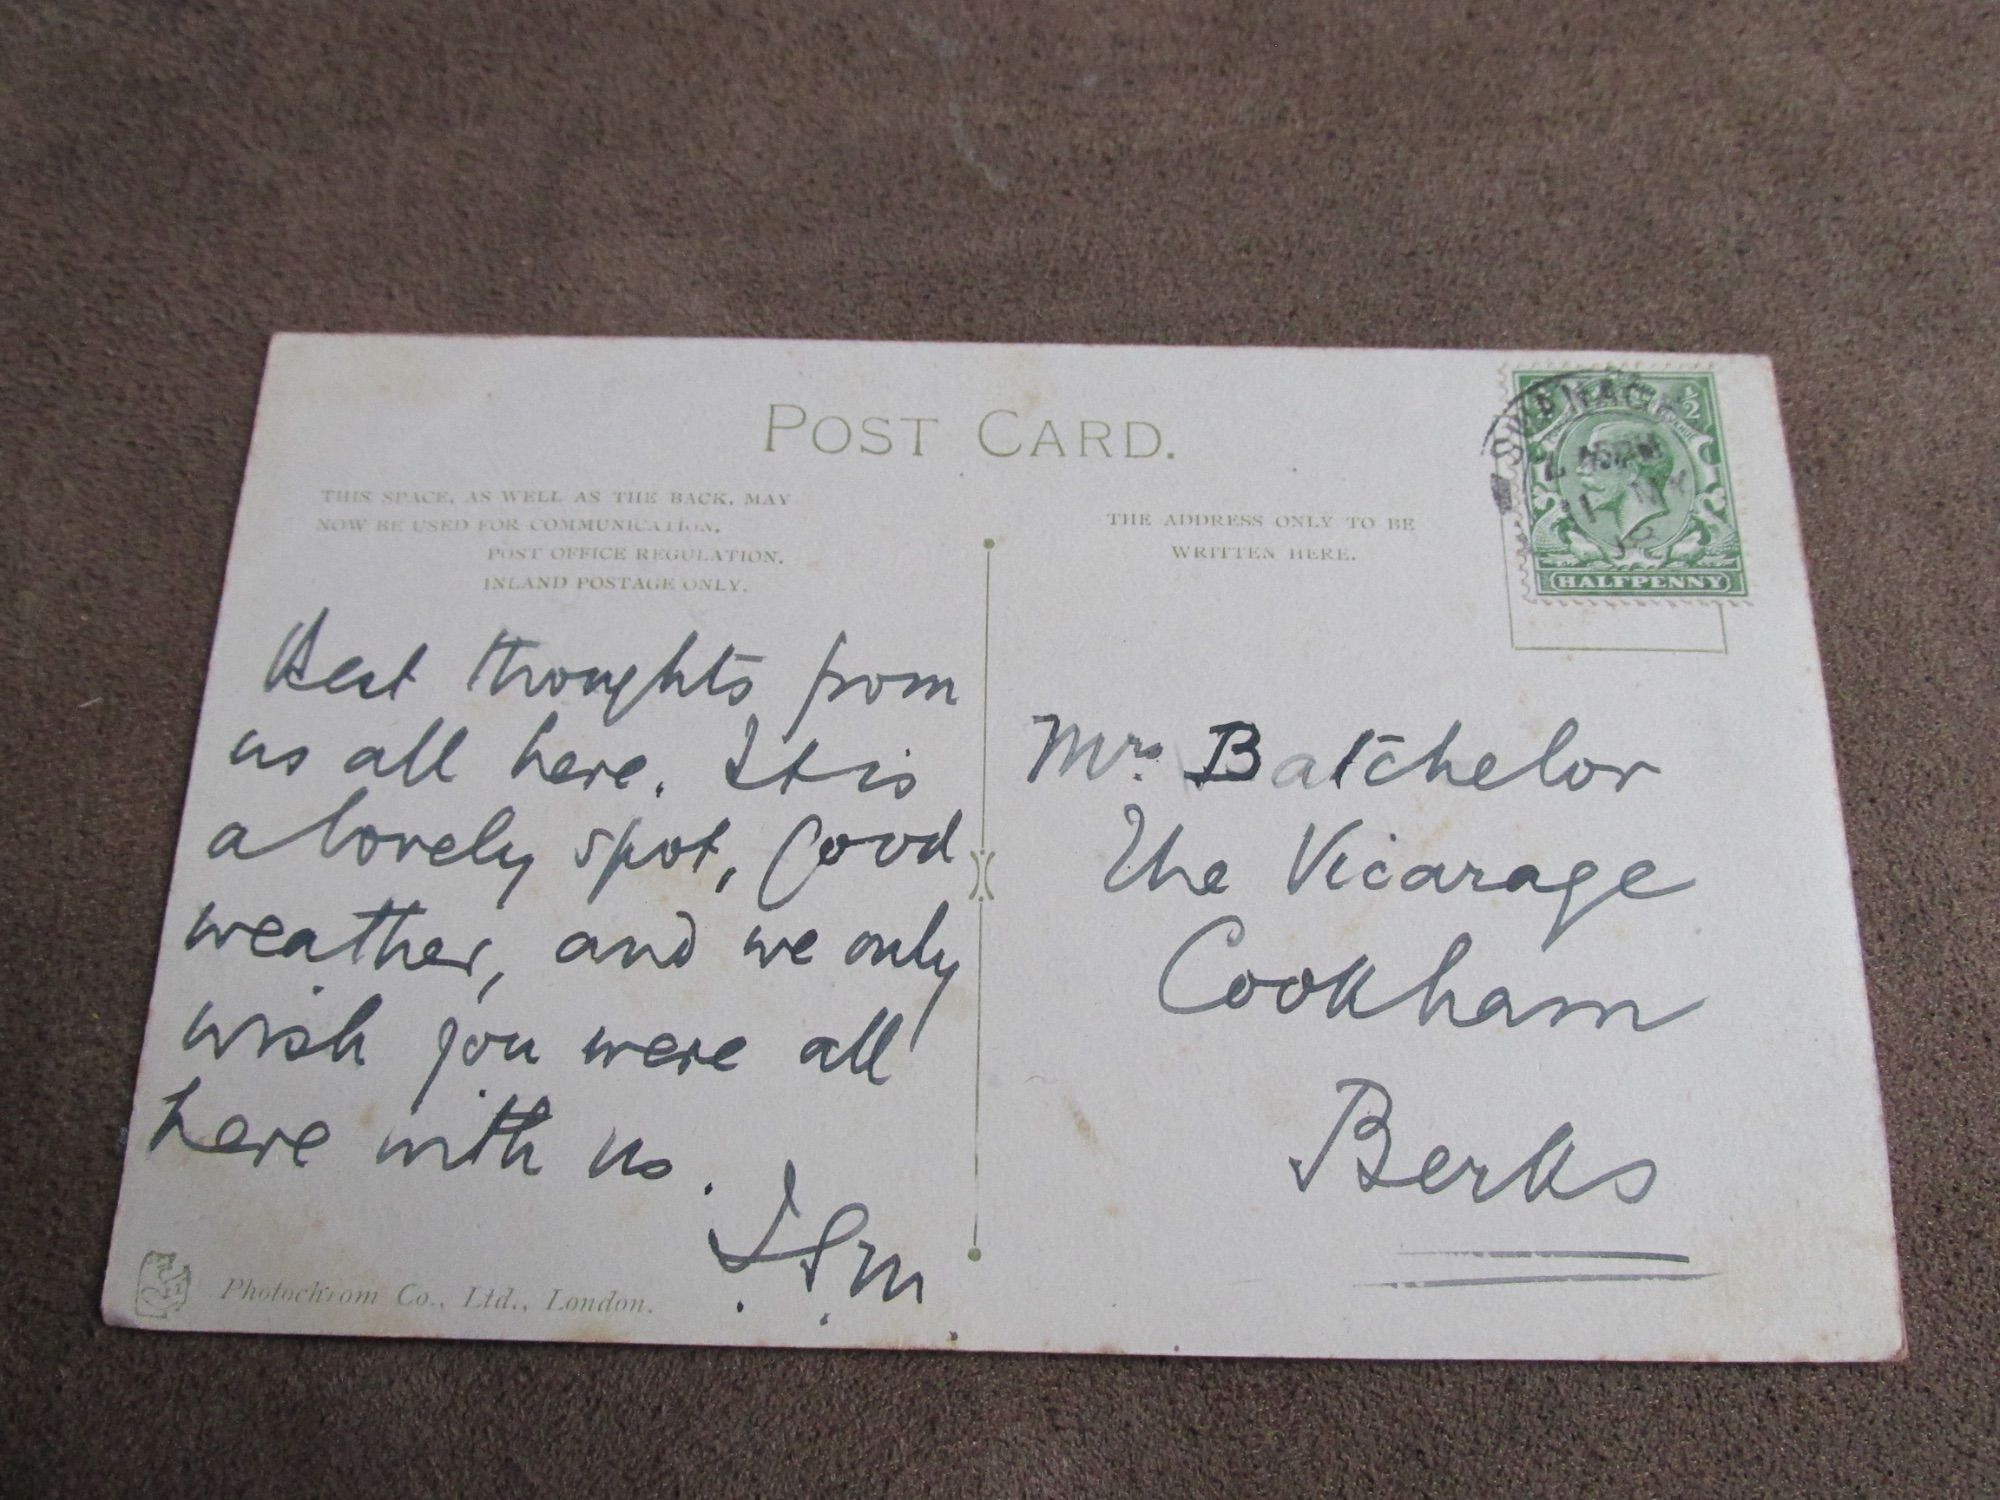 POST CARD.
THIS SPACE, AS WELL AS THE BACK, MAY
NOW BE USED FOR COMMUNICATION.
POST OFFICE REGULATION.
INLAND POSTAGE ONLY.
THE ADDRESS ONLY TO BE
WRITTEN HERE.
SWANAGE
½
HALFPENNY
Best thoughts from
us all here. It is
a lovely spot, Good
weather, and we only
wish you were all
here with us.
Mrs Batchelor
The Vicarage
Cookham
Berks
Photochrom Co., Ltd., London.